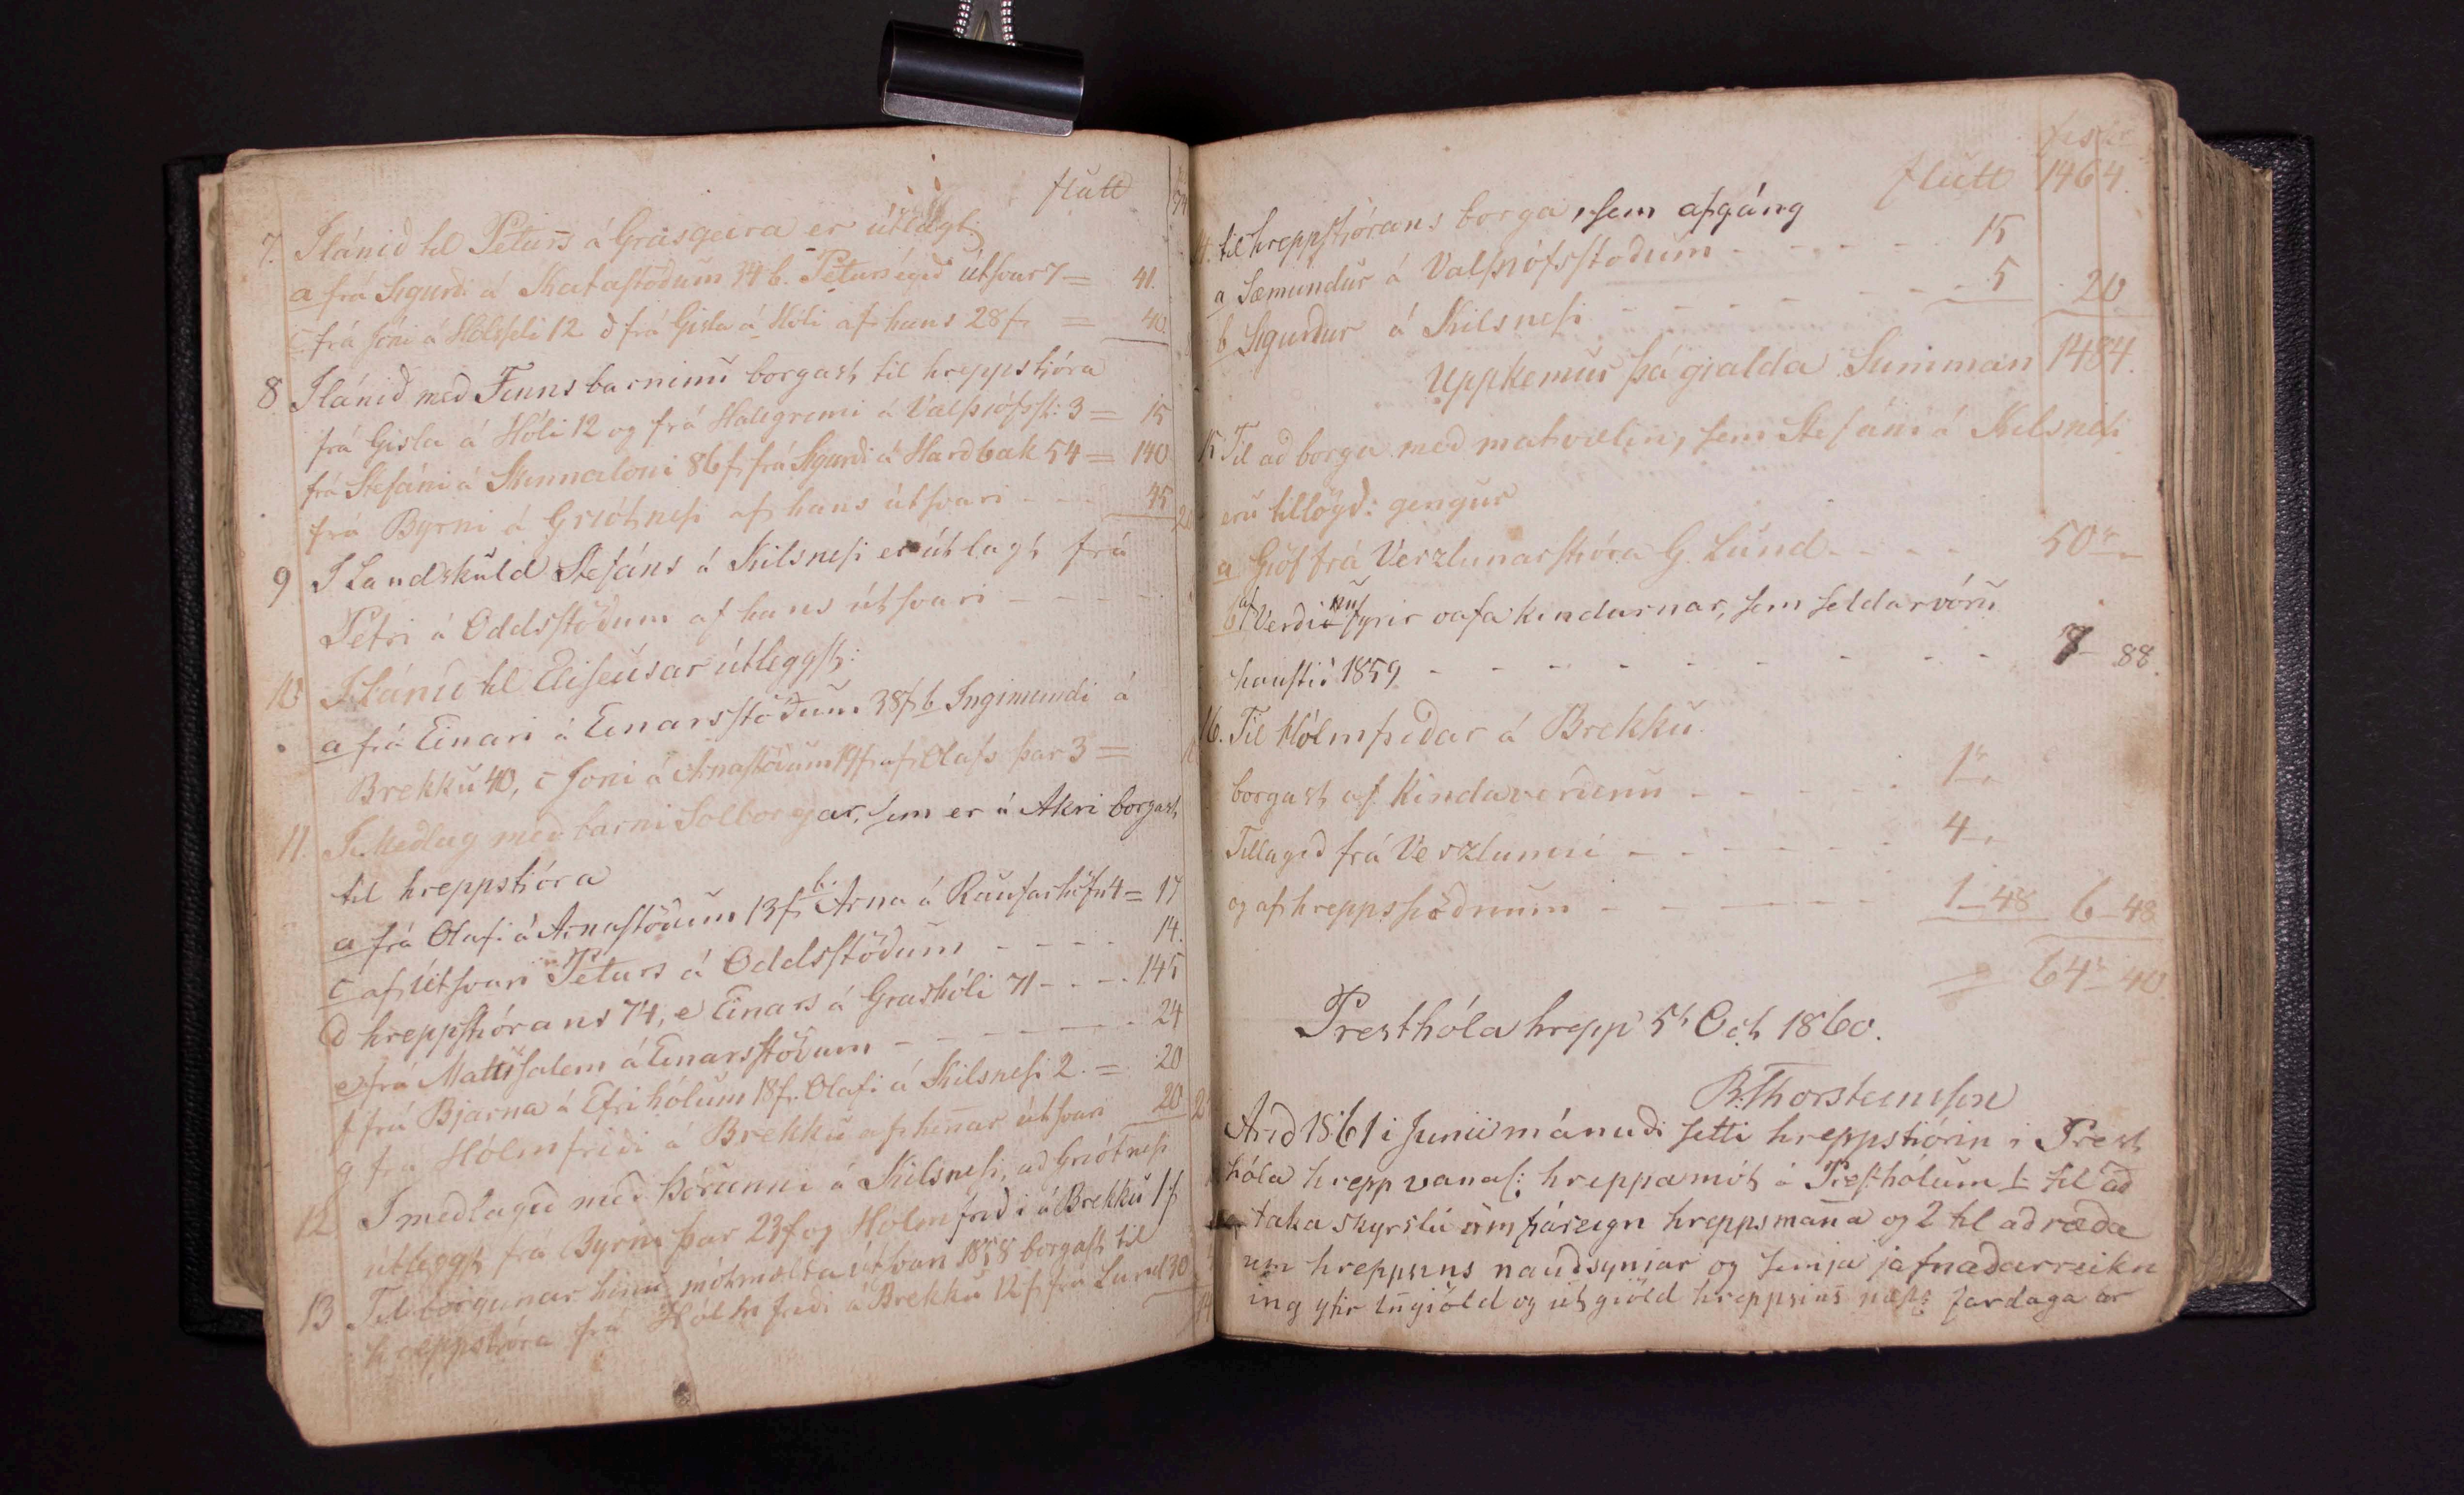 flutt
7. I lánið til Péturs á Grasgeira er útlagt
a frá Sigurði á Kataſtöðum 34 b. Péturs égið útſvar 7 = 41.
c frá Jóni á Hólsſeli 12 d frá Gisla á Hóli af hans 28 f = 40.
8 I lánið með Finns barninu borgast til hreppstióra
frá Gisla á Hóli 12 og frá Halegrimi á Valþiófsſt: 3 = 15
frá Stefáni á Skinnaloni 86 f frá Sigurði á Harðbak 54 = 140
frá Byrni á Griótneſi af hans útſvari - - - 45
9 I Landskuld Stefáns á Kilsneſi er útlagt frá
Pétri á Oddsſtöðum af hans útſvari - - - -
10 I Lánið til Eliſeúsar útleggſt:
a frá Einari á Einarsſtöðum 38 f b Ingimundi á
Brekku 40, c Joni á Arnaſtöðum 19 f af Olafs þar 3 =
11. I Meðlag með barni Solborgar, ſem er á Akri borgast
til hreppstióra
a frá Olafi á Arnaſtöðum 13 f b. Arna á Raufarhöfn 4 = 17
c af útſvari Péturs á Oddsſtöðum - - - - 14.
d hreppſtiórans 74, e Einars á Grashóli 71 - - - 145
e frá Mattúſalem á Einarsſtöðum - - - - - 24
f frá Bjarna á Efrihólum 18 f. Olafi á Kilsneſi 2. = 20
g frá Hólmfriði á Brekku af hen̄ar útſvari 20
12 I meðlagið með Þórunni á Kilsneſi, að Griótneſi
útleggſt frá Byrni þar 23 f og Hólmfriði á Brekku 1 f
13 Til borgunar hinu mótmælta útſvari 1858 borgaſt til
hreppstióra frá Hólmfriði á Brekku 12 f frá Lund 130
flutt 1464.
14. til hreppſtiórans borga, ſem afgáng
a Sæmundur á Valþiófsſtoðum - - - - 15
b Sigurður á Kilsneſi - - - - - - 5 20
Uppkemur þá gialda Summan 1484.
15 Til að borga með matvælin, ſem Stefáni á Kilsneſi
eru tillögð: gengur
a Giöf frá Verzlunarſtióra G. Lund - - - - 50 r –
b af Verðinu fyrir oafa kindurnar, ſem ſeldar vóru
hauſtið 1859 - - - - - - - - - - 7 – 88.
16. Til Hólmfriðar á Brekku
borgast af kindaverðinu - - - - - 1 r „
Tillagið frá Verzluninni - - - - - - 4 „
og af hreppsſióðnum - - - - - - 1–48 6–48
= 64 r 40
Presthóla hrepp 5t Oct 1860.
B: Thorsteinsſon
Arið 1861 i Junii mánuði ſetti hreppstiórin i Prest
hóla hrepp vanal: hreppamót á Preſthólum 1: til að
taka skyrslu um fiáreign hreppsman̄a og 2 til að ræða
um hreppsins nauðsyniar og ſemja jafnaðarreikn
ing yfir in̄giöld og útgiöld hreppsins næſta fardaga ár